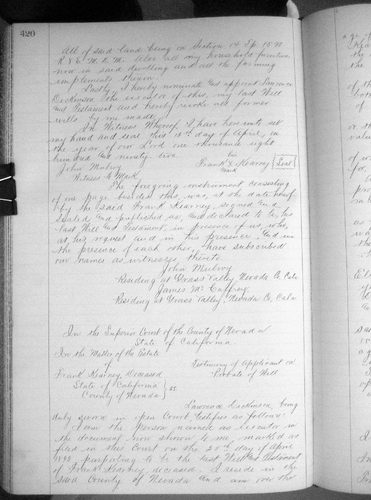 420
All of said land being in Section 14 Tp. 15 N.
R 8 E. M. D. M. Also all my household furniture
now in said dwelling and all the farming
implements thereon.
Lastly, I hereby nominate and appoint Lawrence
Dickinson the executor of this, my last Will
and Testament and hereby revoke all former
wills by me made.
In Witness Whereof, I have hereunto set
my hand and seal this 15th day of April, in
the year of our Lord one thousand eight
hundred and ninety five
his
John Mulroy Frank X Kearney {Seal}
Witness to Mark mark
The foregoing instrument consisting
of one page besides this, was, at the date hereof
by the said Frank Kearney, signed and
sealed and published as, and declared to be, his
last Will and Testament, in presence of us, who,
at his request and in his presence, and in
the presence of each other, have subscribed
our names as witnesses thereto
John Mulroy
Residing at Grass Valley Nevada Co, Cala
James Mc Caffrey
Residing at Grass Valley, Nevada Co, Cala
In the Superior Court of the County of Nevada
State of California
In the Matter of the Estate
of
Frank Kearney, Deceased
Testimony of Applicant on
Probate of Will
State of California
County of Nevada } ss
Lawrence Dickinson, being
duly sworn in open Court testifies as follows:
I am the person named as executor in
the document now shown to me, marked as
filed in this Court on the 20th day of April
1895 purporting to be the last Will and Testament
of Frank Kearney deceased. I reside in the
said County of Nevada and am over the